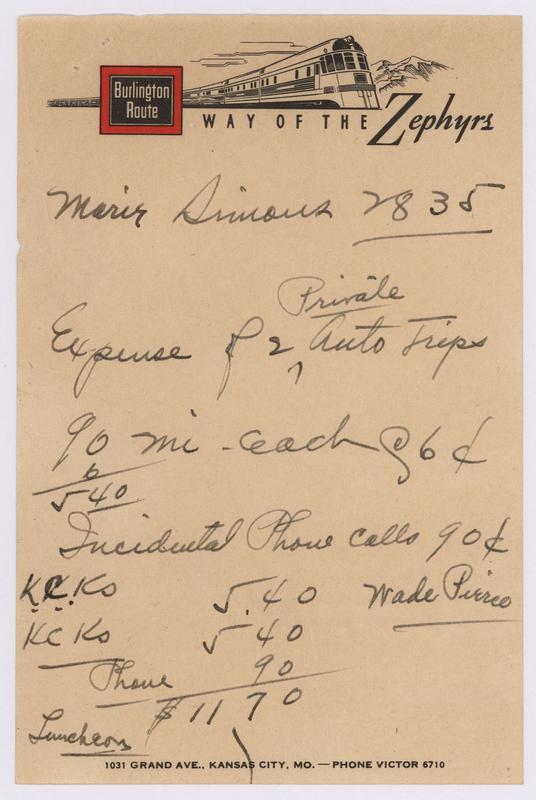 Burlington
Route
WAY OF THE Zephyrs
Marie Simons 2835
Private
Expense of 2 Auto Trips
90 mi - each @ 6¢
6
540
Incidental Phone calls 90¢
K.C.Ks 5.40 Wade Pierce
KCKs 5 40
Phone 90
$11 70
Luncheon
1031 GRAND AVE., KANSAS CITY, MO. — PHONE VICTOR 6710